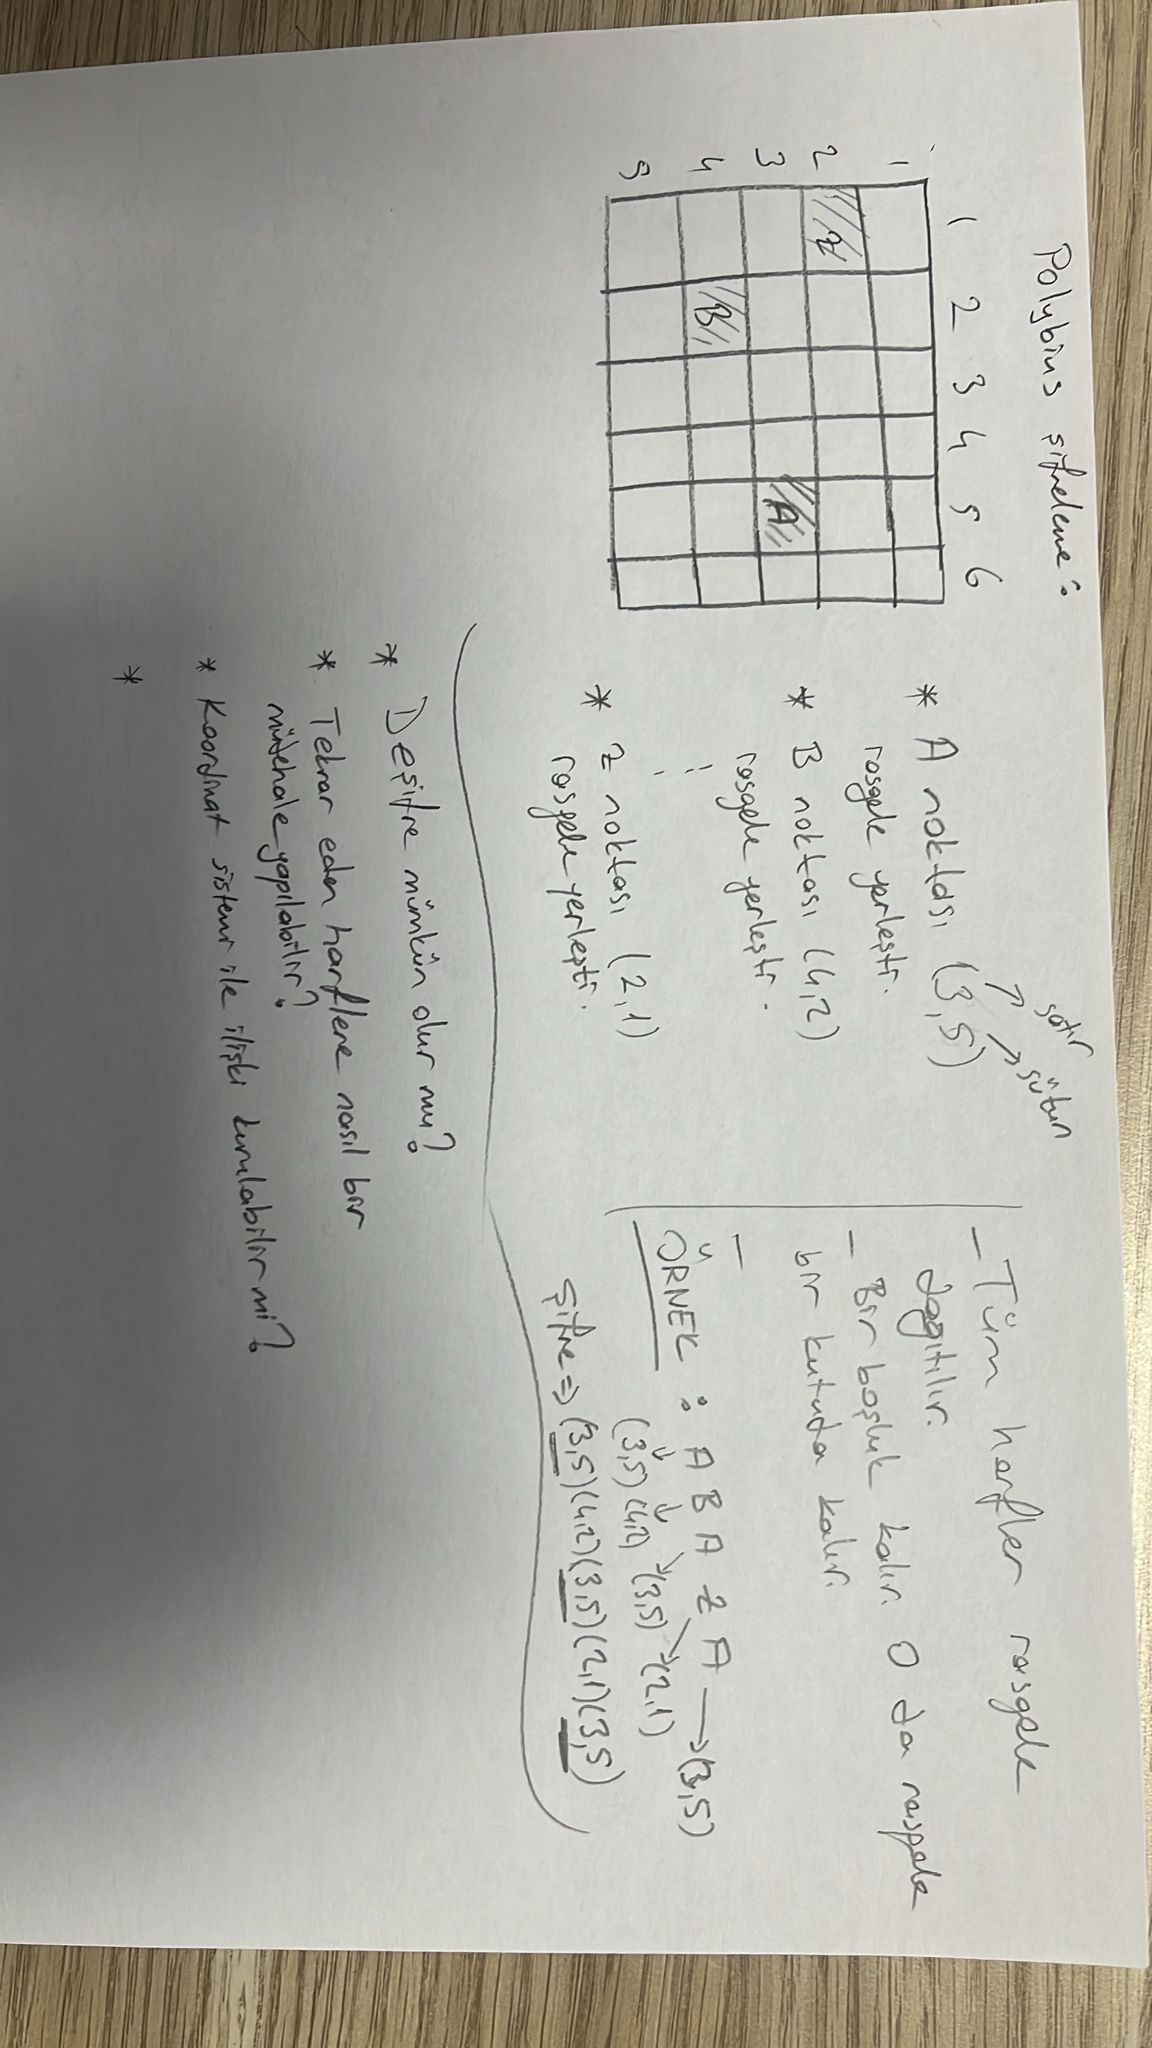 Polybius şifreleme:
1 2 3 4 5 6
1
2
3
4
5
Z
A
B
satır
sütun
* A noktası (3,5)
rasgele yerleşti.
* B noktası (4,2)
rasgele yerleşti.
* Z noktası (2,1)
rasgele yerleşti.
- Tüm harfler rasgele
dağıtılır.
- Bir boşluk kalır. O da rasgele
bir kutuda kalır.
-
ÖRNEK : A B A Z A → (3,5)
(3,5) (4,2) (3,5) (2,1)
Şifre => (3,5)(4,2)(3,5)(2,1)(3,5)
* Deşifre mümkün olur mu?
* Tekrar eden harflere nasıl bir
müdehale yapılabilir?
* Koordinat sistemi ile ilişki kurulabilir mi?
*